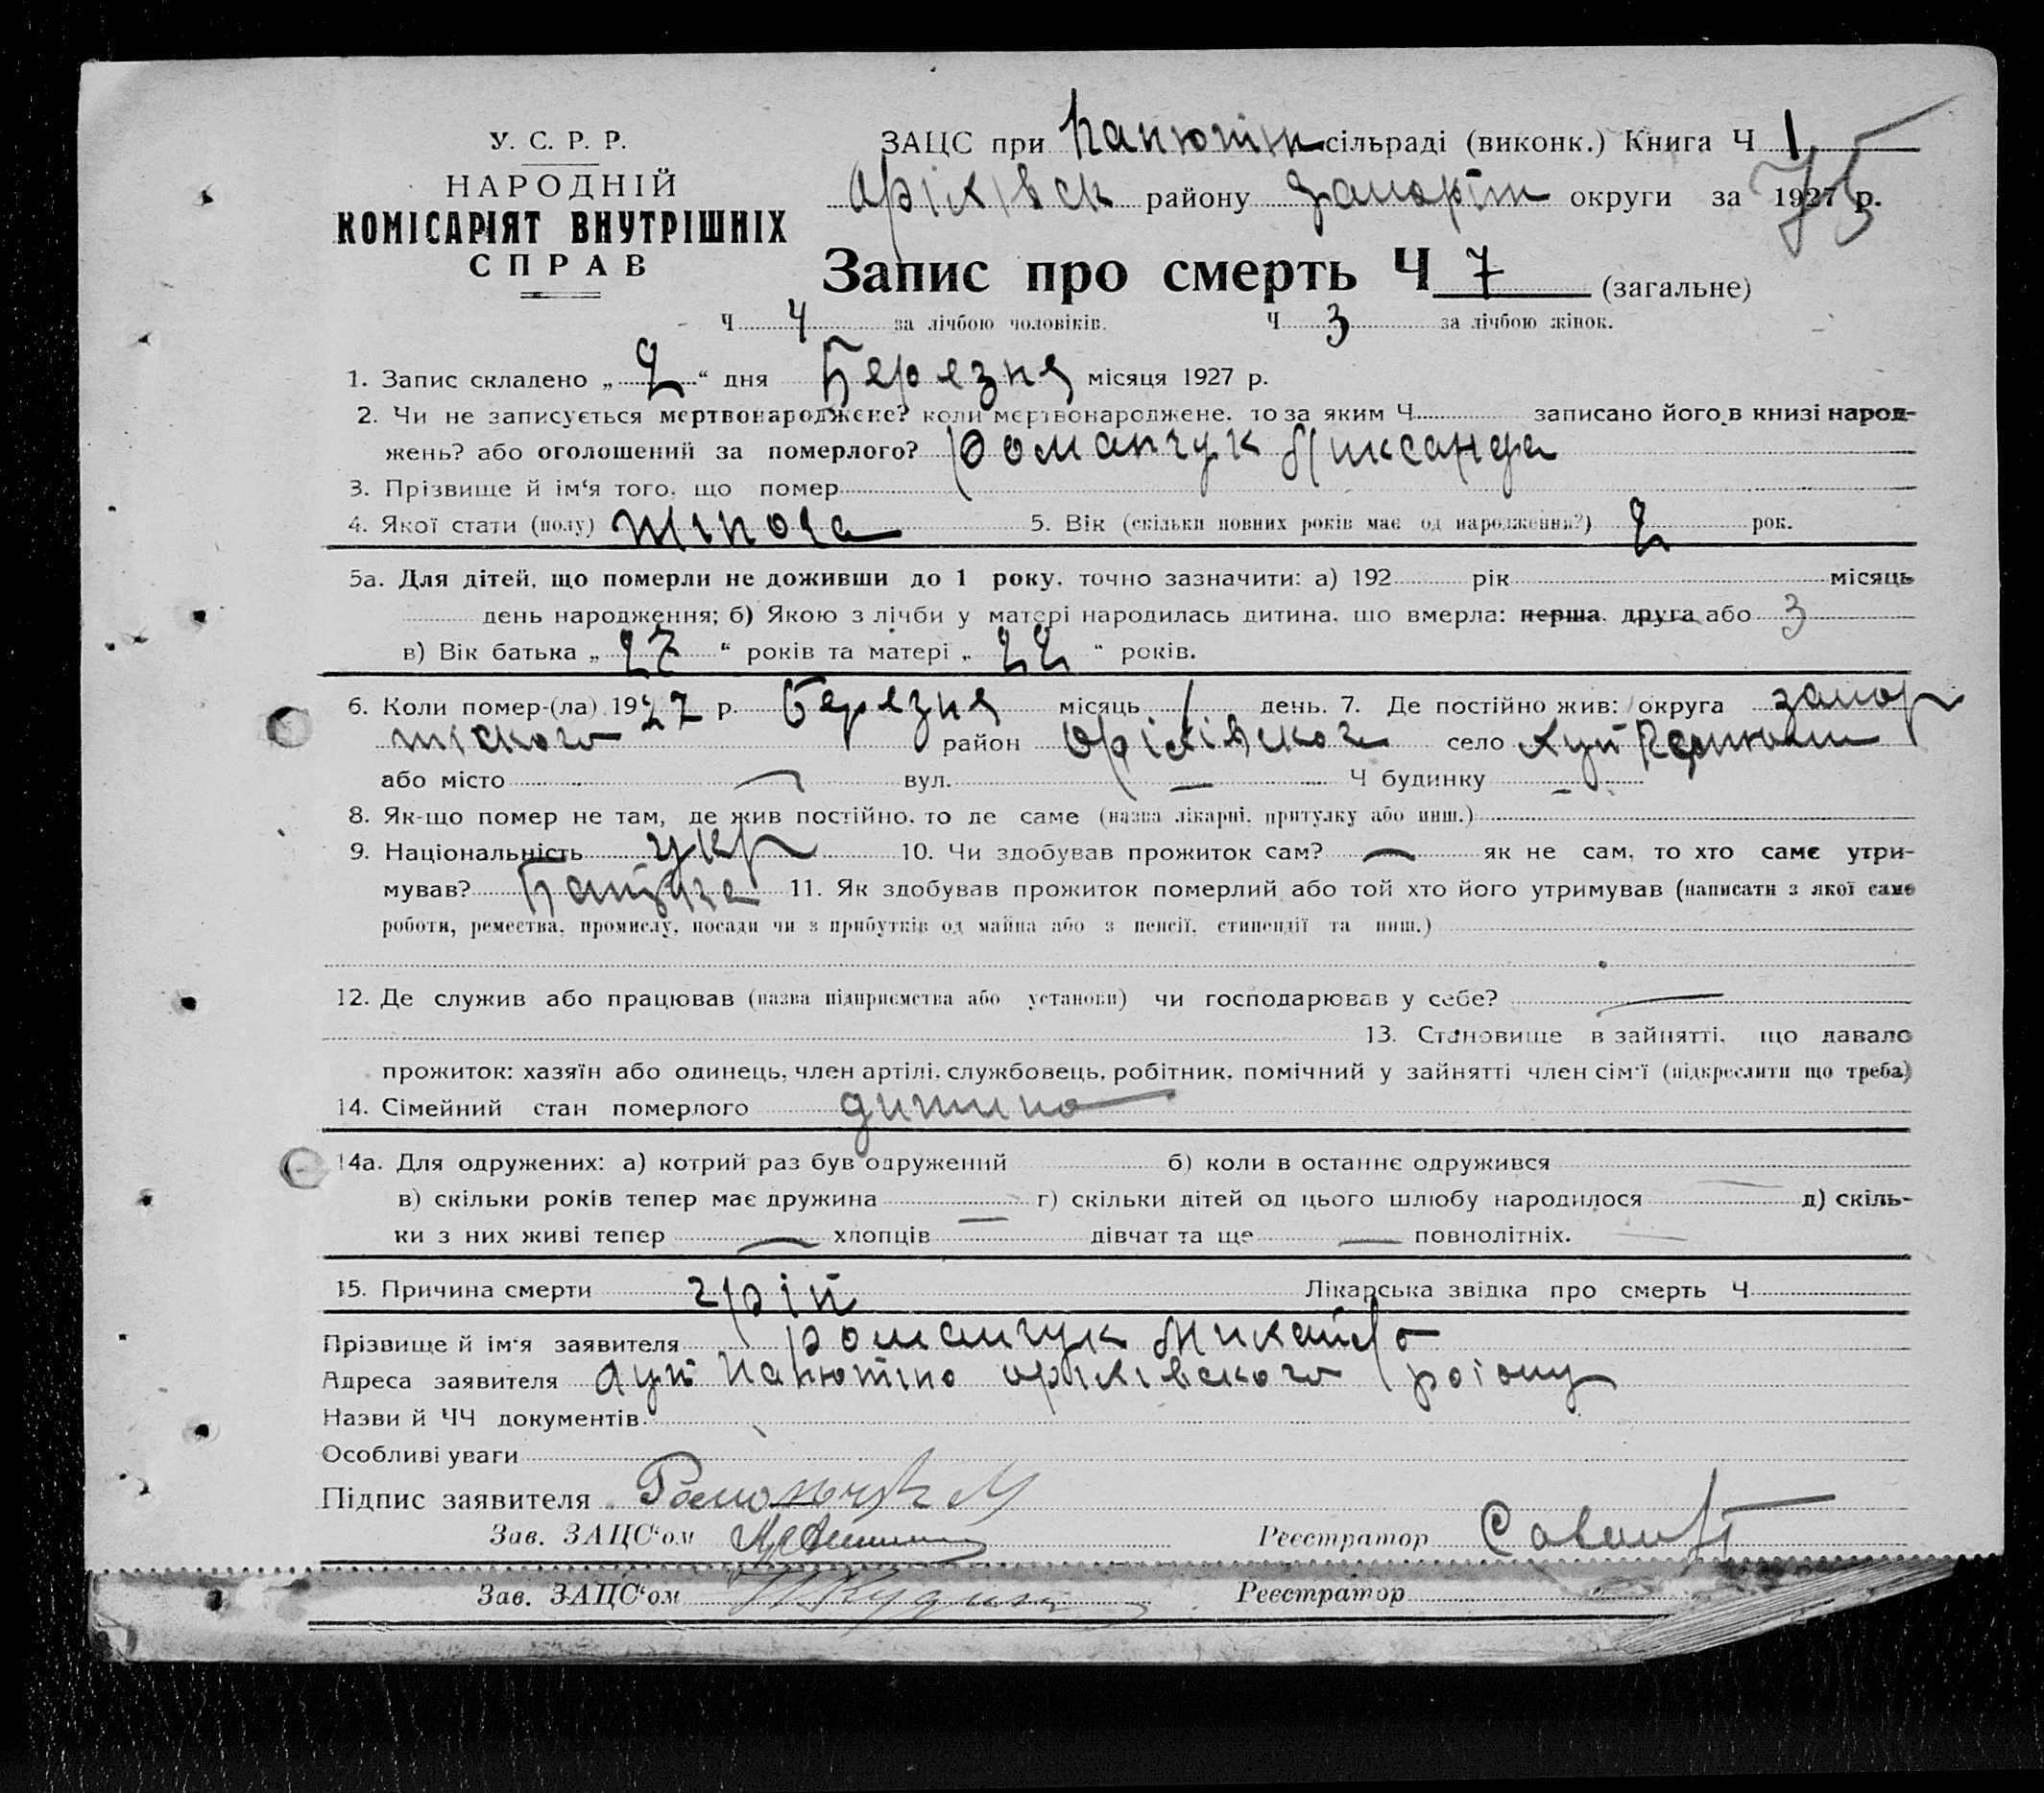 У. С. Р. Р.
НАРОДНІЙ
КОМІСАРІЯТ ВНУТРІШНІХ
СПРАВ
ЗАЦС при Панютін сільраді (виконк.) Книга Ч 1
Оріхівск району Запоріж округи за 1927 р.
75
Запис про смерть Ч 7 (загальне)
Ч 4 за лічбою чоловіків. Ч 3 за лічбою жінок.
1. Запис складено „ 2 “ дня Березня місяця 1927 р.
2. Чи не записується мертвонароджене? коли мертвонароджене, то за яким Ч записано його в книзі народ-
жень? або оголошений за померлого? Романчук Ликсанда
3. Прізвище й ім‘я того, що помер
4. Якої стати (полу) жіноча 5. Вік (скільки повних років має од народження?) 2 рок.
5а. Для дітей, що померли не доживши до 1 року, точно зазначити: а) 192 рік місяць
день народження; б) Якою з лічби у матері народилась дитина, що вмерла: перша, друга або 3
в) Вік батька „ 27 “ років та матері „ 22 “ років.
6. Коли помер-(ла) 1927 р. Березня місяць 1 день. 7. Де постійно жив: округа Запор
іжского район Оріхівского село Хут Панютин
або місто — вул. — Ч будинку —
8. Як-що помер не там, де жив постійно, то де саме (назва лікарні, притулку або инш.)
9. Національність укр 10. Чи здобував прожиток сам? — як не сам, то хто саме утри-
мував? 11. Як здобував прожиток померлий або той хто його утримував (написати з якої саме
роботи, ремества, промислу, посади чи з прибутків од майна або з пенсії, стипендії та инш.)
12. Де служив або працював (назва підприємства або установи) чи господарював у себе? —
13. Становище в зайнятті, що давало
прожиток: хазяїн або одинець, член артілі, службовець, робітник, помічний у зайнятті член сім‘ї (підкреслити що треба)
14. Сімейний стан померлого дитина
14а. Для одружених: а) котрий раз був одружений б) коли в останнє одружився
в) скільки років тепер має дружина — г) скільки дітей од цього шлюбу народилося — д) скіль-
ки з них живі тепер — хлопців дівчат та ще — повнолітніх.
15. Причина смерти гріп Лікарська звідка про смерть Ч
Прізвище й ім‘я заявителя Романчук Михайло
Адреса заявителя Хут Панютіно оріхівского роіону
Назви й ЧЧ документів
Особливі уваги
Підпис заявителя Романчук М
Зав. ЗАЦС‘ом Реєстратор
Зав. ЗАЦС‘ом Реєстратор